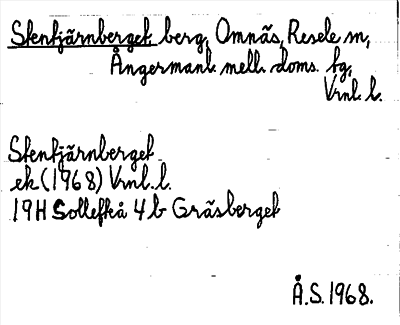 Stentjärnberget berg, Omnäs, Resele sn,
Ångermanl. mell. doms. fg,
Vrnl. l.
Stentjärnberget
ek (1968) Vrnl. l.
19H Sollefteå 4b Gräsberget
Å.S. 1968.